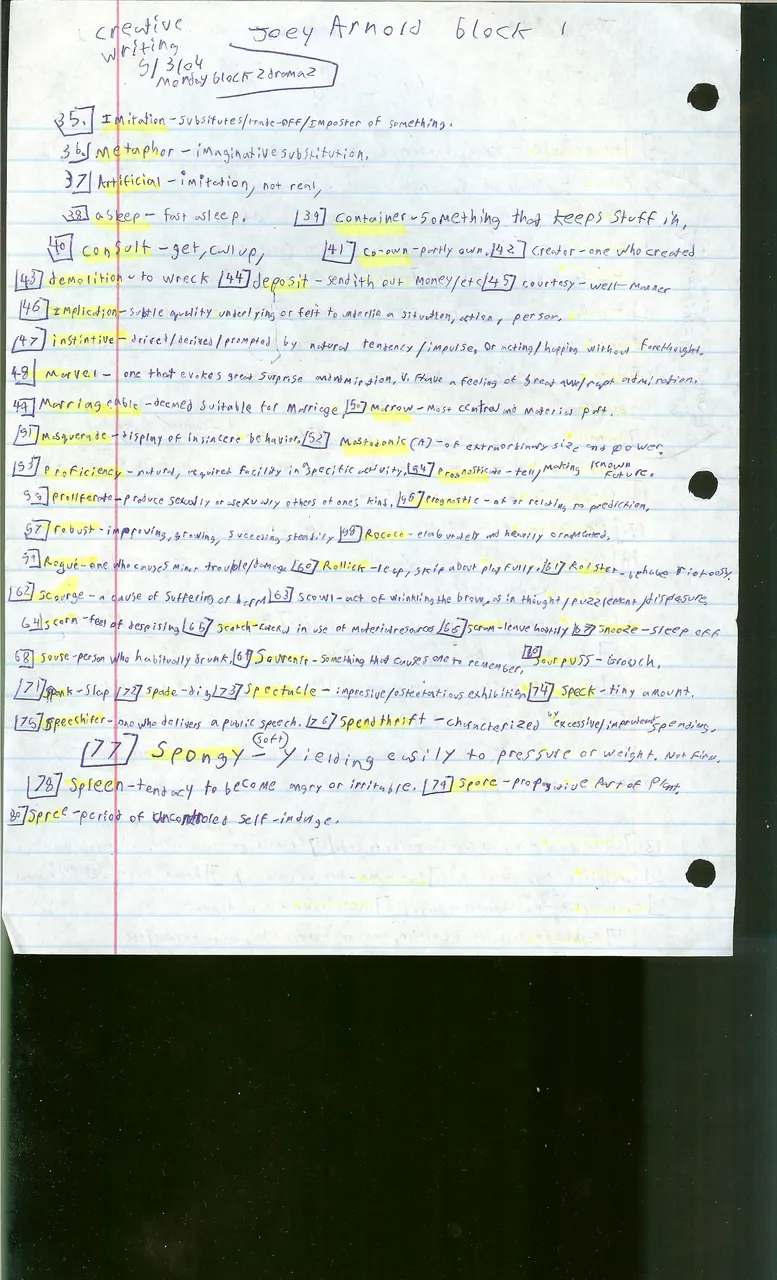 creative Joey Arnold block 1
writing
5/3/04
Monday block 2 drama 2
35. Imitation - Substitutes/trade-off/Imposter of something.
36. Metaphor - imaginative substitution.
37 Artificial - imitation, not real,
38 asleep - fast asleep. 39 container - something that keeps stuff in,
40 consult - get, call up, 41 co-own - partly own. 42 creator - one who created
43 demolition - to wreck 44 deposit - send ith out money/etc 45 courtesy - well-manner
46 Implication - subtle quality underlying or felt to underlie a situation, action, person.
47 instintive - drived/derived/prompted by natural tendency/impulse, or acting/happing without forethought.
48 Marvel - one that evokes great surprise and admiration, V. Have a feeling of great awe/rapt admiration.
49 Marriageable - deemed suitable for Marriege, 50 Marrow - most central and material part.
51 Masquerade - display of insincere behavior, 52 Mastodonic (A) - of extraordinary size and power.
53 Proficiency - natural, required facility in a specific activity, 54 Prognosticate - tell, making known future.
55 proliferate - produce sexually or asexually others of ones kind, 56 Prognostic - of or relating to prediction,
57 robust - improving, growing, succeeding steadily 58 Rococo - elaborately and heavily ornamented,
59 Rogue - one who causes minor trouble/damage 60 Rollick - leap, skip about playfully, 61 Roister - behave riotously.
62 Scourge - a cause of suffering or harm 63 Scowl - act of wrinkling the brow, as in thought/puzzlement/displeasure,
64 scorn - feel of despising 65 Scotch - in use of material resources 66 scram - leave hastily 67 Snooze - sleep off
68 souse - person who habitually drunk, 69 Souvenir - something that causes one to remember, 70 Sourpuss - Grouch,
71 spank - slap 72 spade - dig 73 Spectacle - impresive/ostentatious exhibition 74 Speck - tiny amount.
75 Speechifer - one who delivers a public speech. 76 Spendthrift - characterized by excessive/imprudent spending.
77 Spongy - (soft) Yielding easily to pressure or weight. Not Firm.
78 Spleen - tendacy to become angry or irritable. 79 Spore - propagative Part of Plant.
80 Spree - period of uncontroled self-indulge.